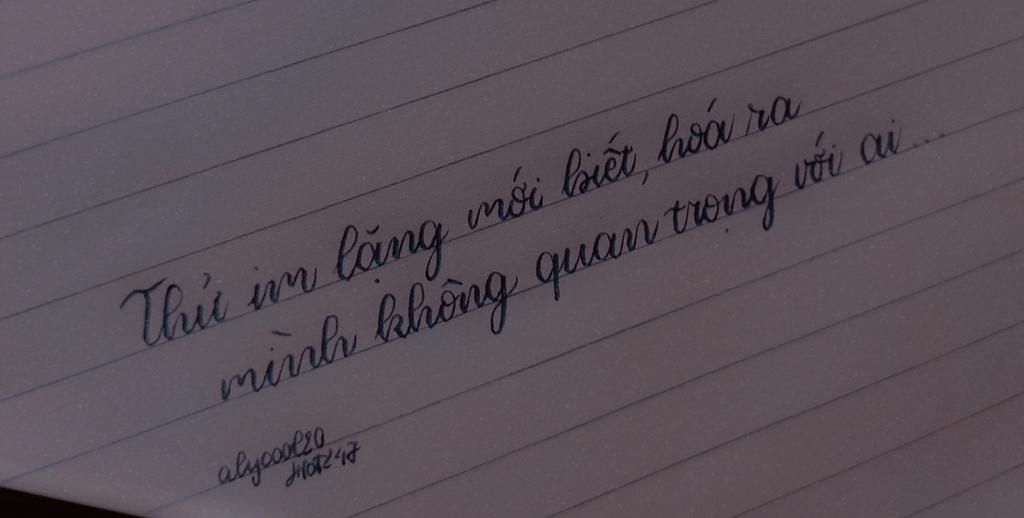 Thử im lặng mới biết, hoá ra
mình không quan trọng với ai...
alycool20